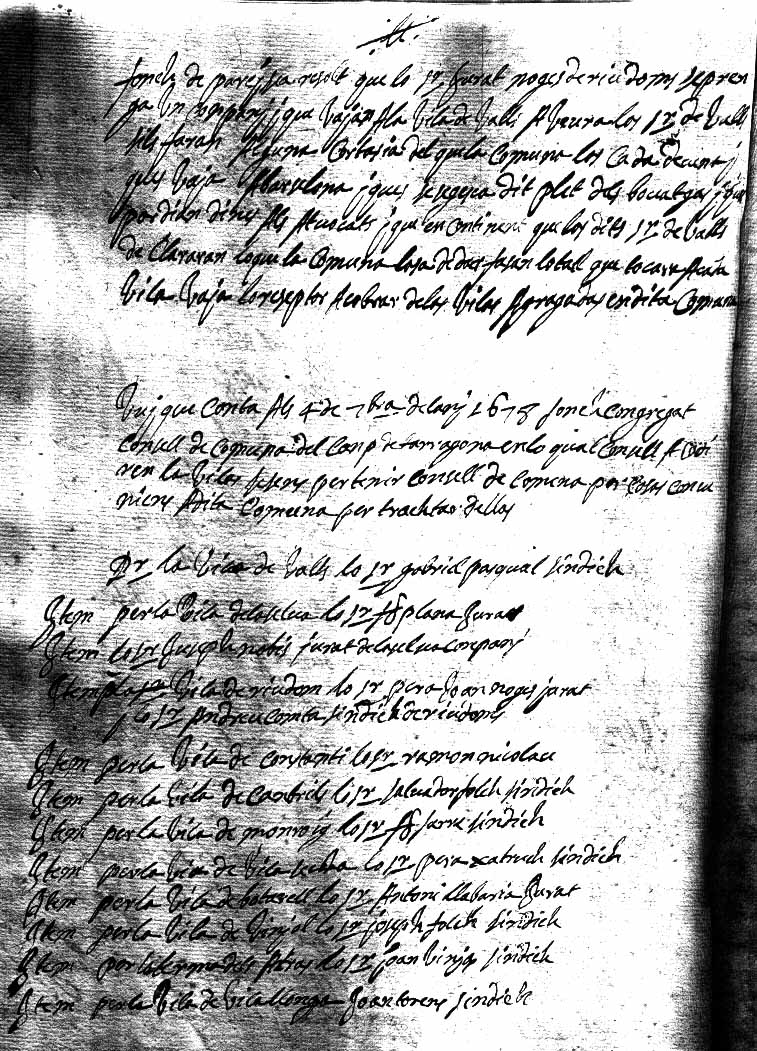 fonch de pareij sia resolt que lo sr Jurat noges de riudoms se pren
ga un companÿ j que vajan A la vila de Valls A veura los srs de Valls
sils faran Alguna Cortesia del que la Comuna los
que vaja A barselona j ques dit plet dels bocatges j que
portian dines Als Avocats j que en continent que los dits srs de Valls
de Clararan lo que la Comuna fasan lo tall que tocara A cada
vila vaja lo reseptor A cobrar de las Vilas Agregadas en dita Comuna
Vuj que Contam Als 4 de 7bra del anj 1678 fonch congregat
Consell de Comuna del Camp de tarragona en lo qual Consell A
ren las vilas seguens per tenir Consell de Comuna per cosas conve
niens A dita Comuna per trachtar dellas
Pr la vila de Valls lo sr gabriel pasqual sindich
Item per la Vila de laselva lo sr ff plana Jurat
Item lo sr Juseph nebot jurat de laselva Companÿ
Item per la vila de riudoms lo sr pera Joan noges jurat
j lo sr Andreu Comta sindich de riudoms
Item per la Vila de Constanti lo sr ramon nicolau
Item per la vila de Cambrils lo sr salvador folch sindich
Item per la Vila de monroig lo sr ff sindich
Item per la vila de vila secha lo sr pera xatruch sindich
Item per la Vila de botarell lo sr Antoni llabaria Jurat
Item per la Vila de Vinjols lo sr joseph folch sindich
Item per lo sr joan sindich
Item per la Vila de Vilallonga Joan torens sindich